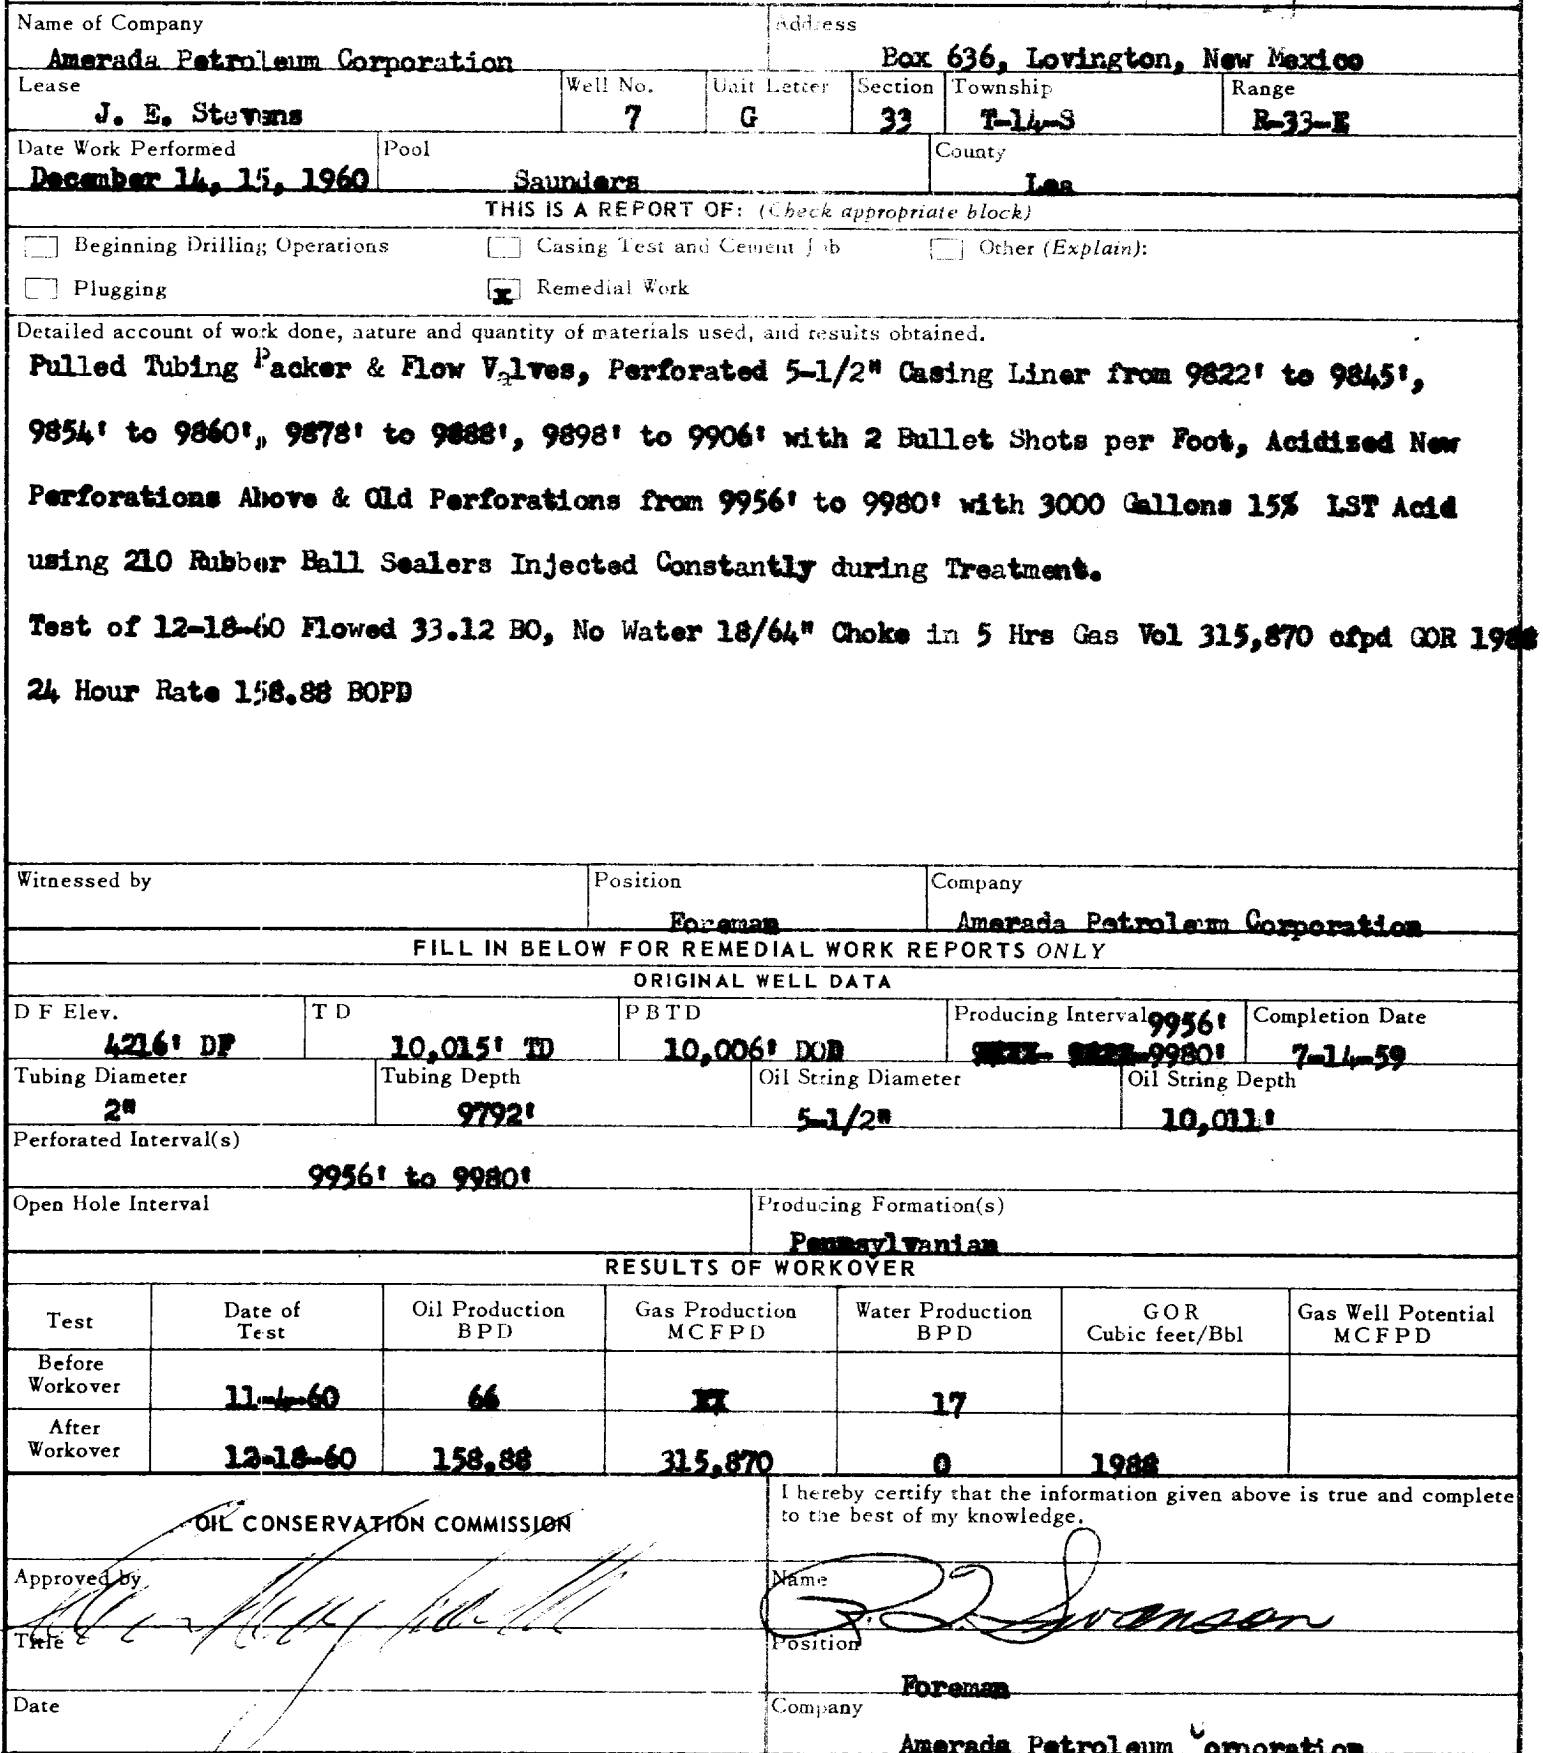 Name of Company
Address
Amerada Petroleum Corporation
Box 636, Lovington, New Mexico
Lease
Well No.
Unit Letter
Section
Township
Range
J. E. Stevens
7
G
33
T-14-S
R-33-E
Date Work Performed
Pool
County
December 14, 15, 1960
Saunders
Lea
THIS IS A REPORT OF: (Check appropriate block)
Beginning Drilling Operations
Casing Test and Cement Job
Other (Explain):
Plugging
x Remedial Work
Detailed account of work done, nature and quantity of materials used, and results obtained.
Pulled Tubing Packer & Flow Valves, Perforated 5-1/2" Casing Liner from 9822' to 9845',
9854' to 9860', 9878' to 9888', 9898' to 9906' with 2 Bullet Shots per Foot, Acidized New
Perforations Above & Old Perforations from 9956' to 9980' with 3000 Gallons 15% LST Acid
using 210 Rubber Ball Sealers Injected Constantly during Treatment.
Test of 12-18-60 Flowed 33.12 BO, No Water 18/64" Choke in 5 Hrs Gas Vol 315,870 cfpd GOR 1988
24 Hour Rate 158.88 BOPD
Witnessed by
Position
Company
Foreman
Amerada Petroleum Corporation
FILL IN BELOW FOR REMEDIAL WORK REPORTS ONLY
ORIGINAL WELL DATA
D F Elev.
T D
P B T D
Producing Interval
Completion Date
4216' DF
10,015' TD
10,006' DOD
9956'
-9980'
7-14-59
Tubing Diameter
Tubing Depth
Oil String Diameter
Oil String Depth
2"
9792'
5-1/2"
10,011'
Perforated Interval(s)
9956' to 9980'
Open Hole Interval
Producing Formation(s)
Pennsylvanian
RESULTS OF WORKOVER
Test
Date of Test
Oil Production BPD
Gas Production MCFPD
Water Production BPD
GOR Cubic feet/Bbl
Gas Well Potential MCFPD
Before Workover
11-4-60
66
17
After Workover
12-18-60
158.88
315,870
0
1988
OIL CONSERVATION COMMISSION
I hereby certify that the information given above is true and complete
to the best of my knowledge.
Approved by
Name
Swanson
Title
Position
Foreman
Date
Company
Amerada Petroleum Corporation